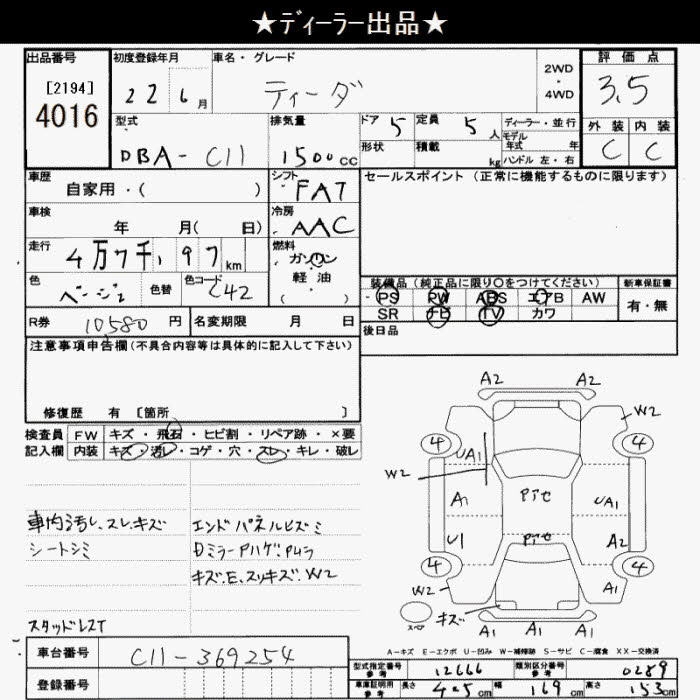 ★ディーラー出品★
出品番号
[2194]
4016
初度登録年月
22 6月
車名・グレード
ティーダ
2WD
・
4WD
評価点
3.5
外装 内装
C C
型式
DBA-C11
排気量
1500cc
ドア 5
形状
定員 5人
積載 kg
ディーラー・並行
モデル年式 年
ハンドル 左・右
車歴
自家用・( )
シフト
FAT
セールスポイント(正常に機能するものに限ります)
車検
年 月( 日)
冷房
AAC
走行
4万7千,197km
燃料
ガソリン
軽・油
( )
色
ベージュ
色替
色コード
C42
装備品(純品に限り○をつけてください)
PS PW ABS エアB AW
SR ナビ TV カワ
新車保証書
有・無
R券 10580円
名変期限 月 日
後日品
注意事項申告欄(不具合内容等は具体的に記入して下さい)
修復歴 有 [箇所 ]
検査員
記入欄
FW キズ・飛石・ヒビ割・リペア跡・×要
内装 キズ・汚レ・コゲ・穴・スレ・キレ・破レ
車内汚レ、スレ、キズ
シートシミ
エンドパネルヒズミ
DミラーPハゲ、Pムラ
キズ、E、スリキズ、W2
スタッドレスT
A2 A2
W2
4 4
UA1
W2
A1 Pテモ UA1
U1 Pテモ A2
4 4
W2 A1
キズ
スペア
A1 A1 A1
A-キズ E-エクボ U-凹み W-補修跡 S-サビ C-腐食 XX-交換済
車台番号
C11-369254
登録番号
型式指定番号
参考
12666
類別区分番号
参考
0289
車庫証明用
参考
長さ 425cm
幅 169cm
高さ 153cm